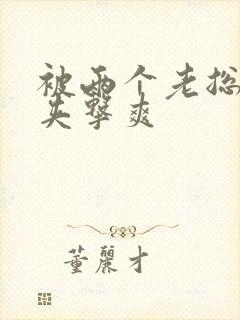 被两个老总
夹擊爽
董麗才